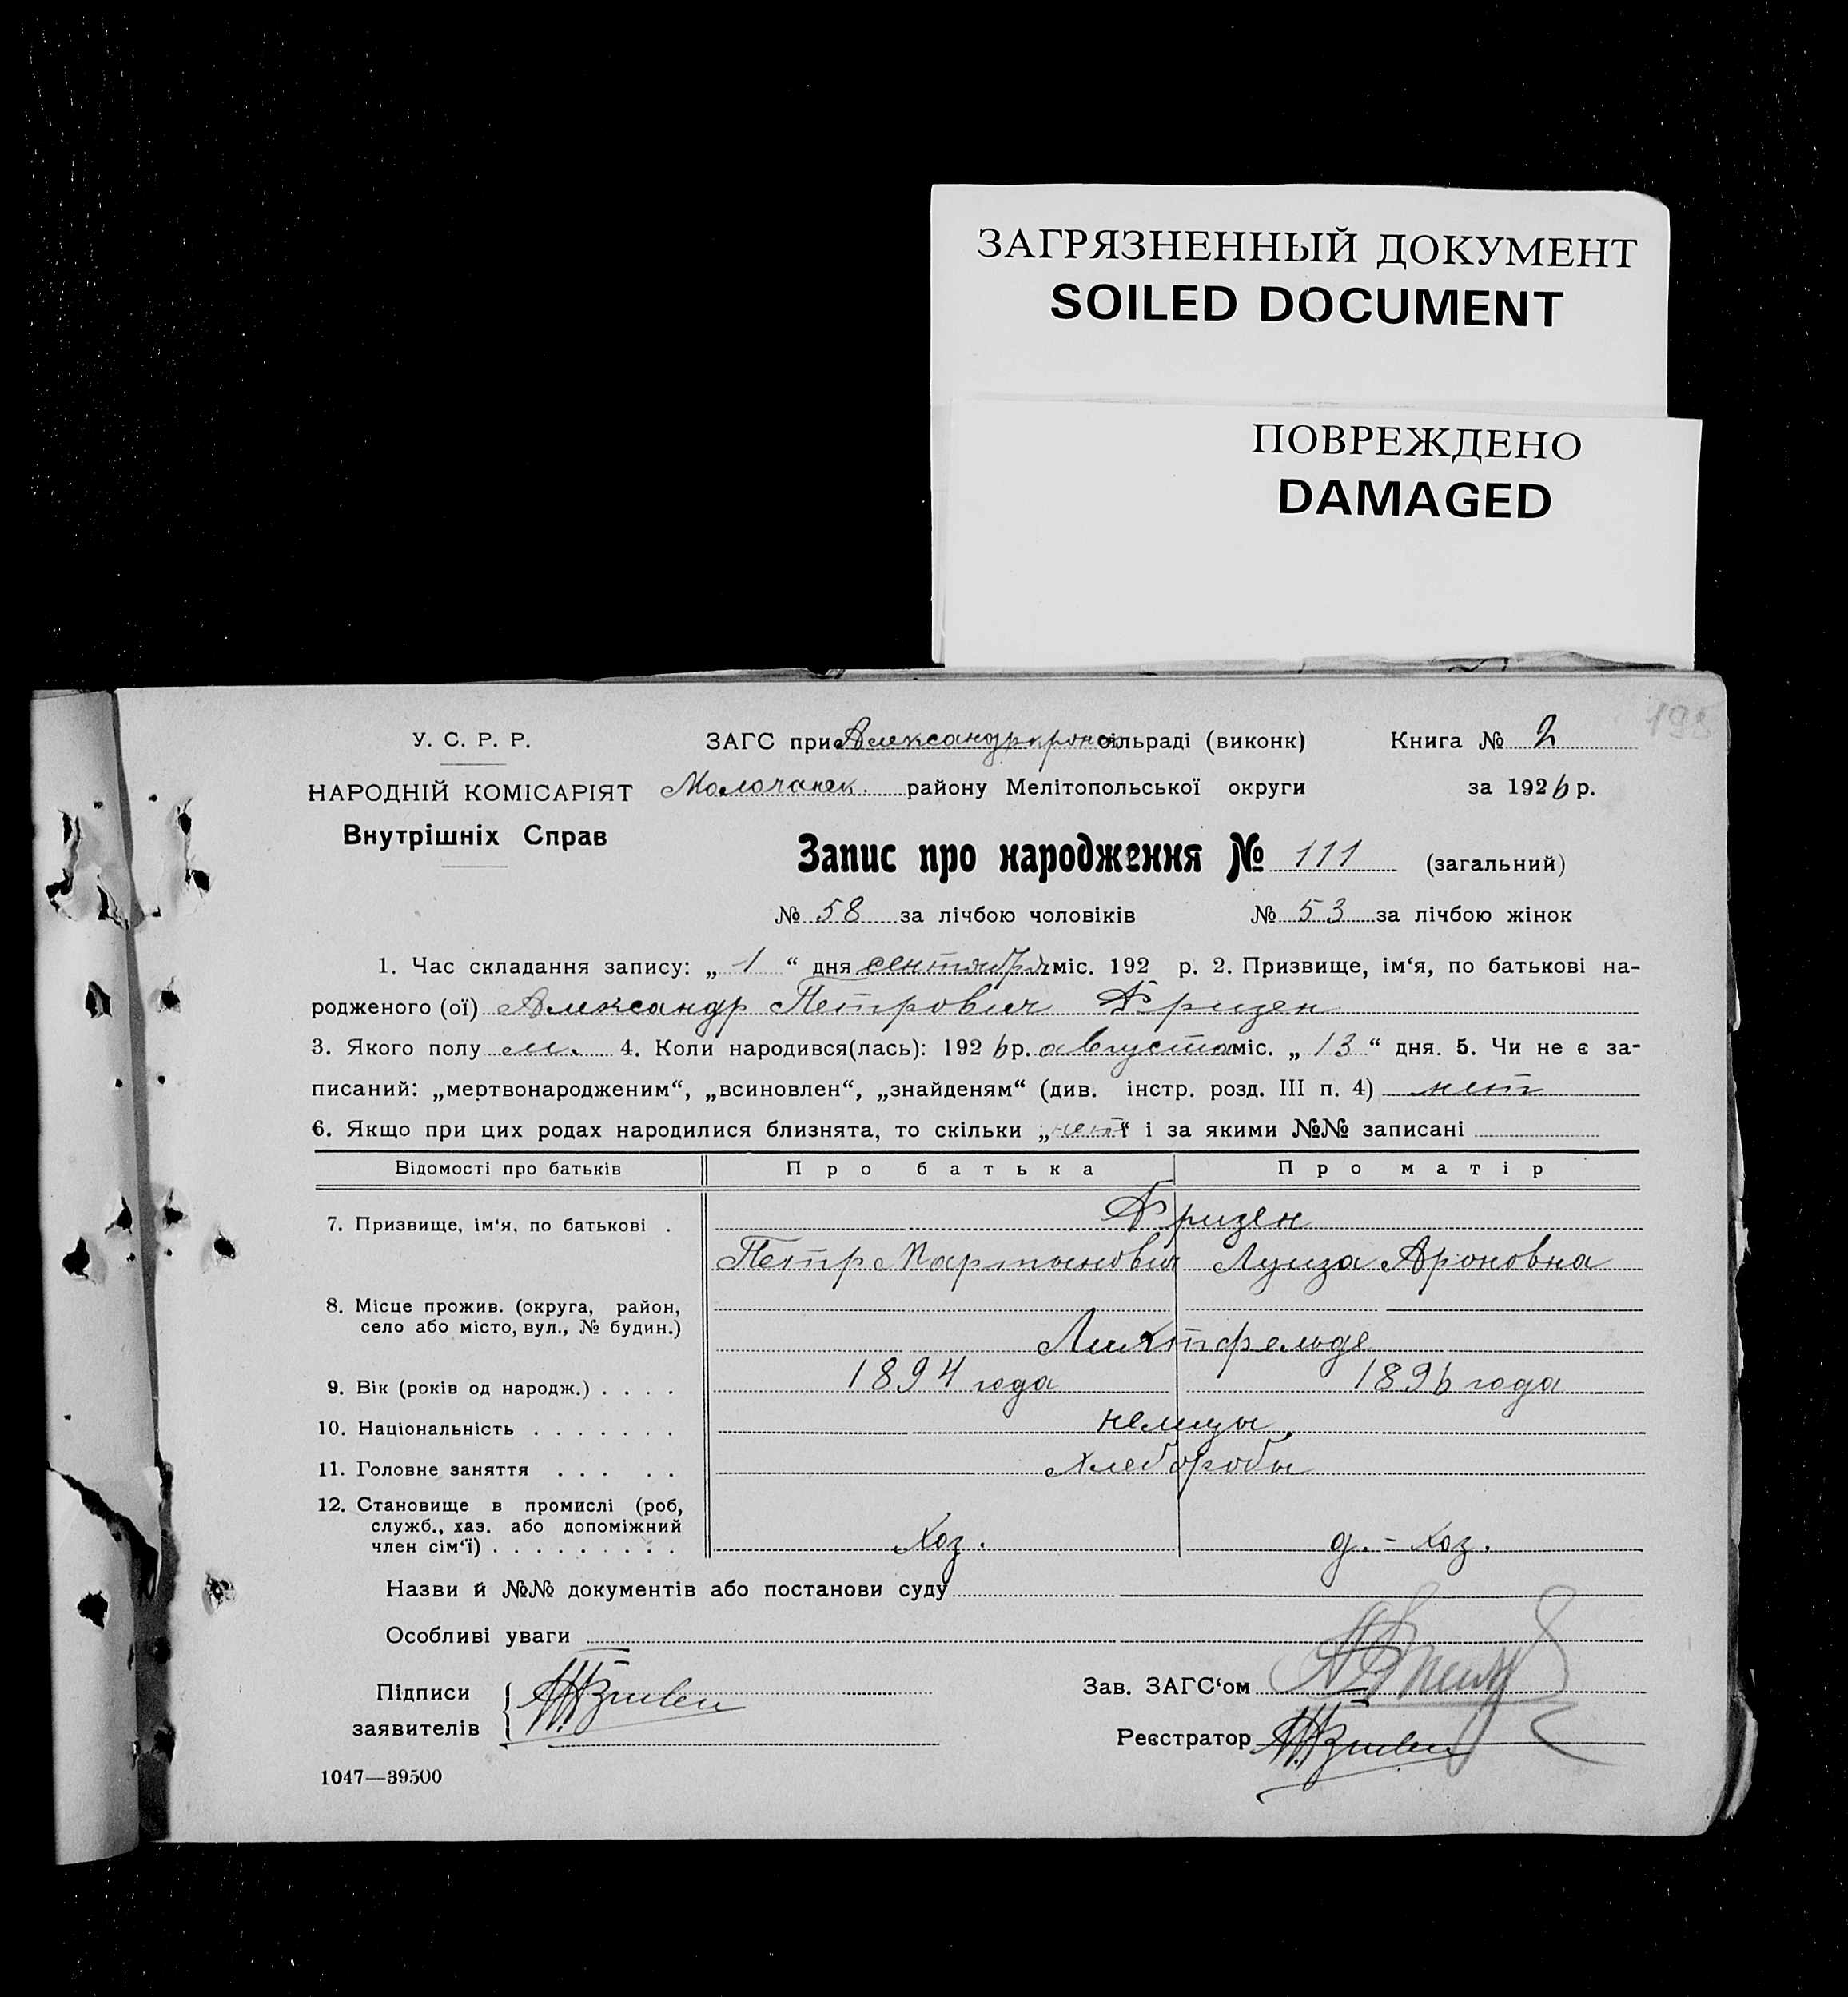 ЗАГРЯЗНЕННЫЙ ДОКУМЕНТ
SOILED DOCUMENT
ПОВРЕЖДЕНО
DAMAGED
У. С. Р. Р.
НАРОДНІЙ КОМІСАРІЯТ
Внутрішніх Справ
ЗАГС при Александркрон сільраді (виконк) Книга № 2
Молочанск. району Мелітопольської округи за 1926 р.
Запис про народження № 111 (загальний)
№ 58 за лічбою чоловіків № 53 за лічбою жінок
1. Час складання запису: „ 1 “ дня сентября міс. 192 р. 2. Призвище, ім‘я, по батькові на-
родженого (ої) Александр Петрович Фризен
3. Якого полу м. 4. Коли народився(лась): 1926 р. августа міс. „ 13 “ дня. 5. Чи не є за-
писаний: „мертвонародженим“, „всиновлен“, „знайденям“ (див. інстр. розд. III п. 4) нет
6. Якщо при цих родах народилися близнята, то скільки „нет“ і за якими №№ записані
Відомості про батьків Про батька Про матір
7. Призвище, ім‘я, по батькові . Фризен
Петр Мартынович Луиза Ароновна
8. Місце прожив. (округа, район,
село або місто, вул., № будин.) Лихтфельде
9. Вік (років од народж.) . . . . 1894 года 1896 года
10. Національність . . . . . . . немцы.
11. Головне заняття . . . . . хлеборобы
12. Становище в промислі (роб,
служб., хаз. або допоміжний
член сім‘ї) . . . . . . . . . хоз. д.-хоз.
Назви й №№ документів або постанови суду
Особливі уваги
Підписи
заявителів
Зав. ЗАГС‘ом
Реєстратор
1047—39500